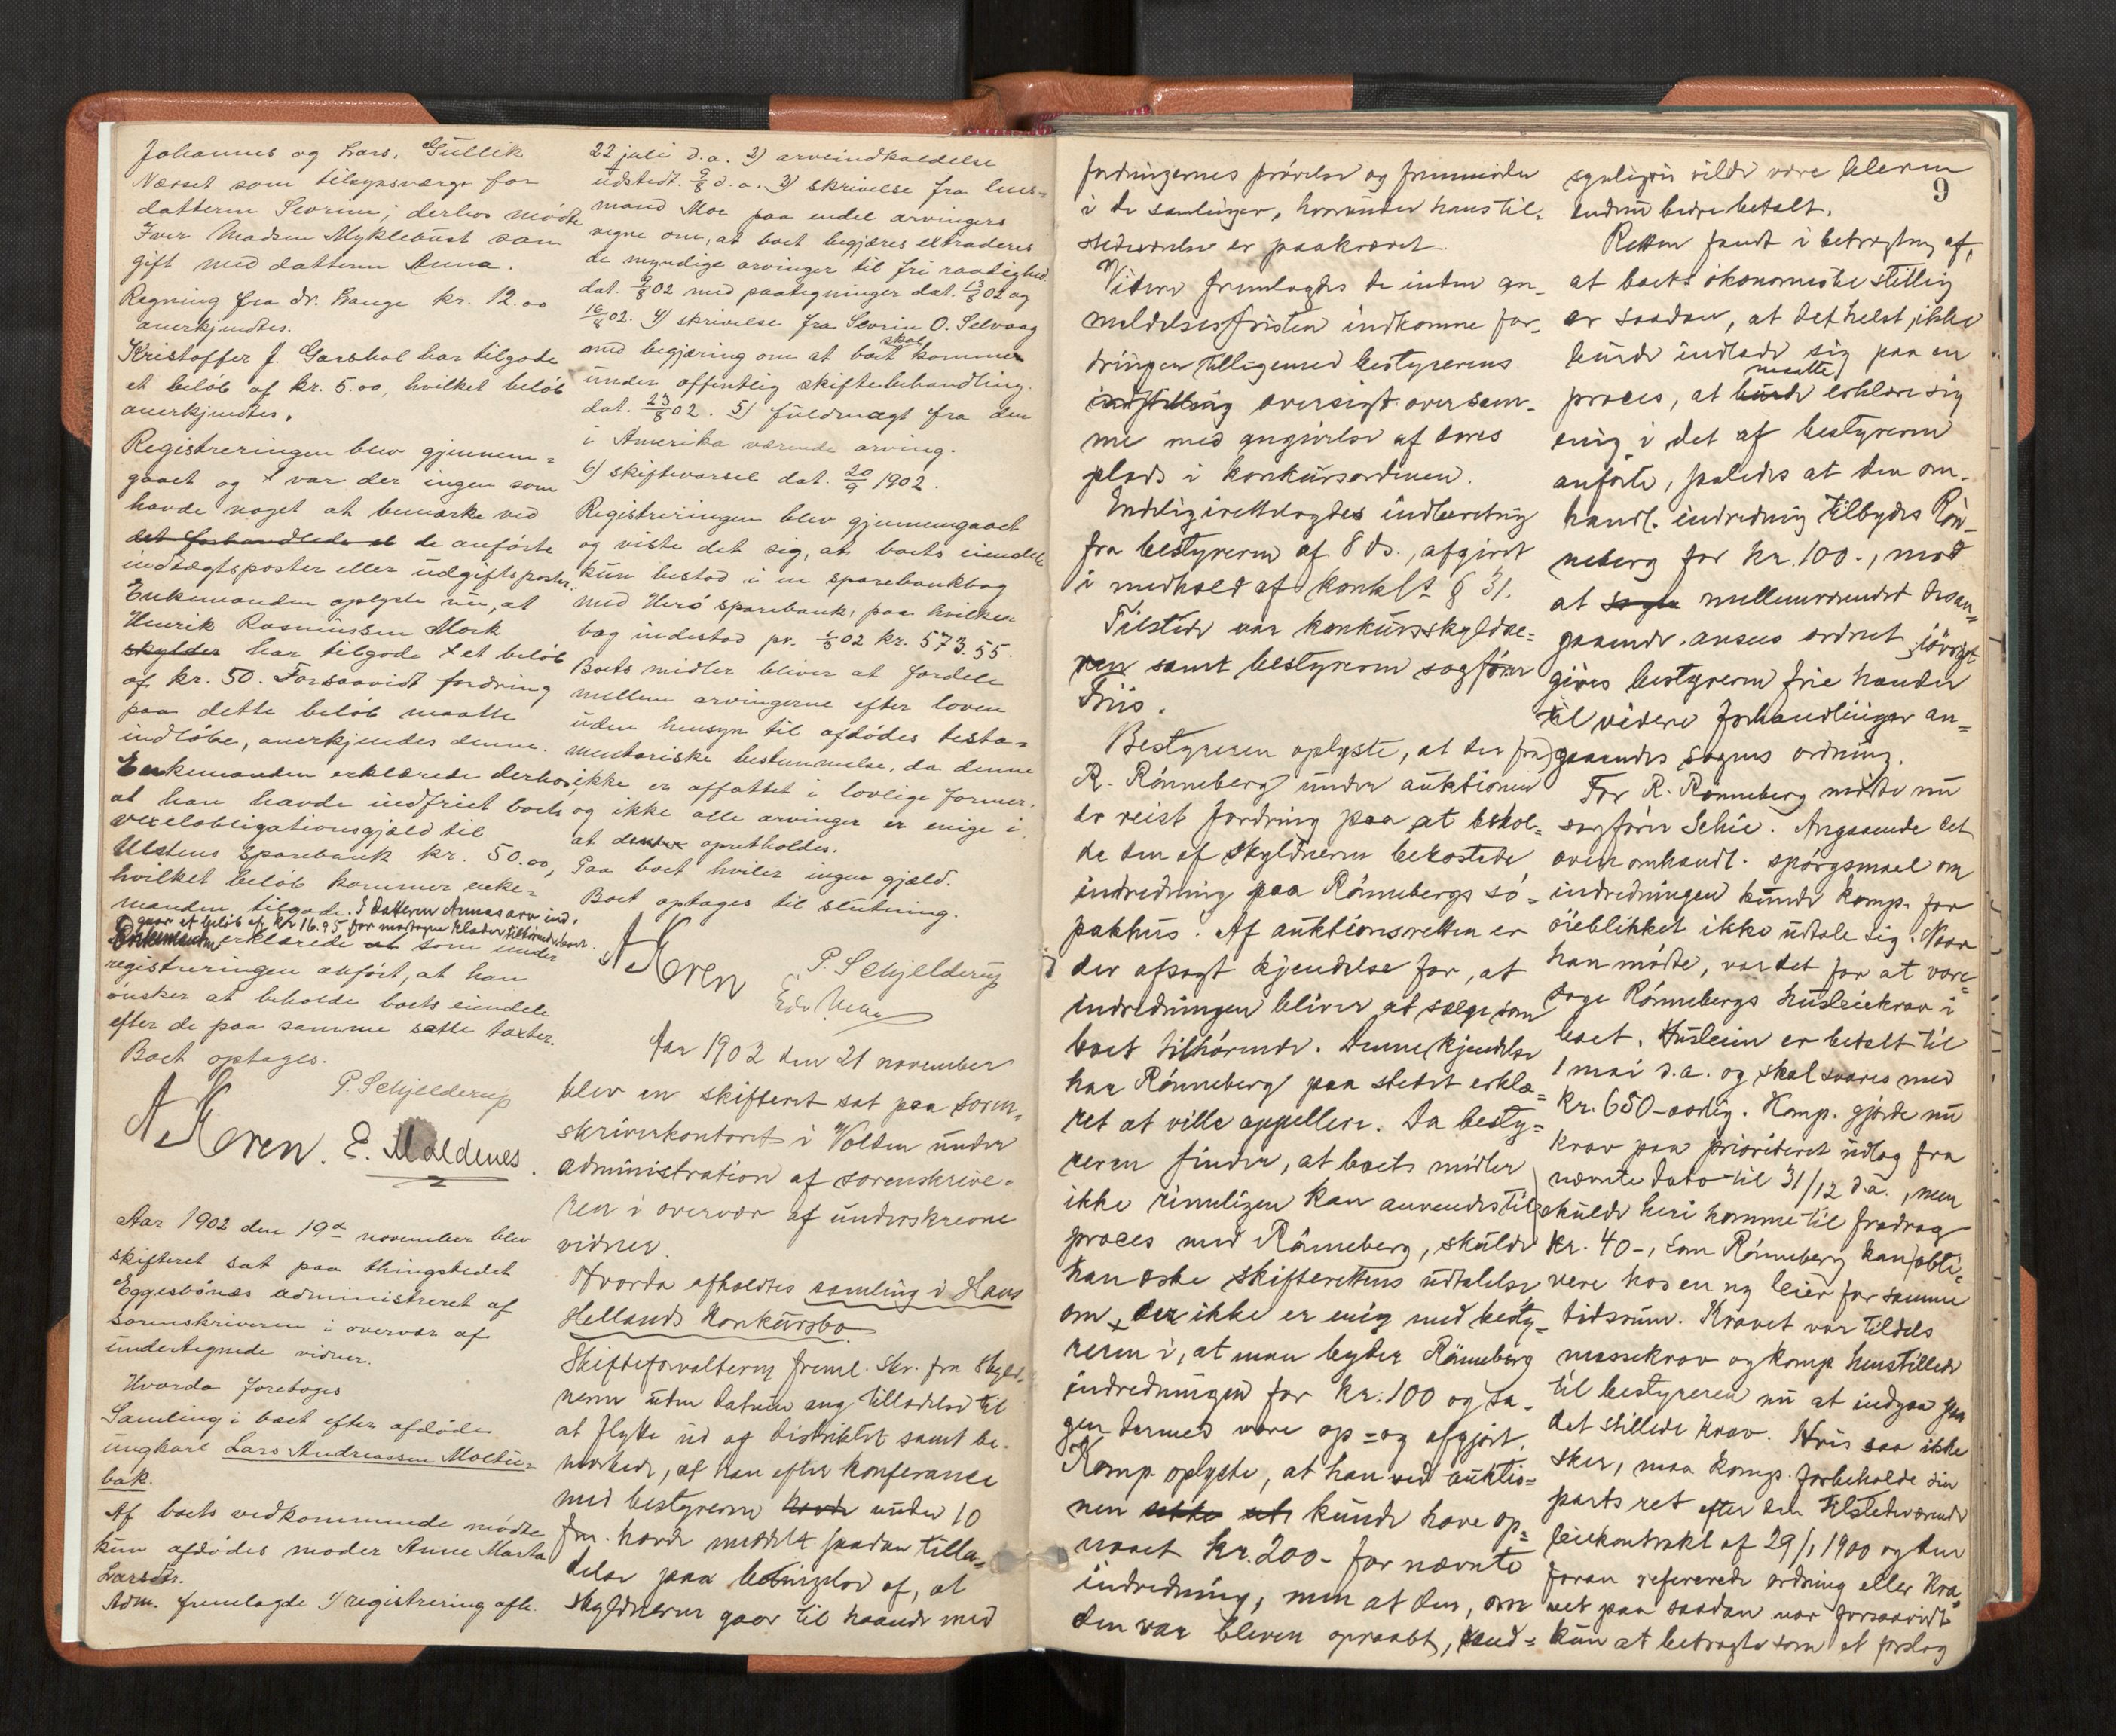 Johannes og Lars, Gullik
Nærset som tilsynsværge for
datteren Sevrine; derhos mødte
Iver Madsen Myklebust som
gift med datteren Anna.
Regning fra dr. Lange kr. 12.00
anerkjendtes.
Kristoffer J. Garshol har tilgode
et beløb af kr. 5.00, hvilket beløb
anerkjendtes.
Registreringen blev gjennem-
gaaet og var der ingen som
havde noget at bemærke ved
det forhandlede de anførte
indtægtsposter eller udgiftsposter.
Enkemanden oplyste nu, at
Henrik Rasmussen Mork
skylder har tilgode et beløb
af kr. 50. Forsaavidt fordring
paa dette beløb maatte
indløbe, anerkjendes denne.
Enkemanden erklærede derhos
at han havde indfriet boets
vexelobligationsgjæld til
Ulstens sparebank kr. 50.00,
hvilket beløb kommer enke-
manden tilgode. I datteren Annas arv ind.
gaar et beløb af kr 16.95 for modtagne klæder tilhørende boet.
Enkemanden erklærede som under
registreringen anført, at han
ønsker at beholde boets eiendele
efter de paa samme satte taxter.
Boet optages.
P. Schjelderup
A Koren. E. Maldenes.
Aar 1902 den 19de november blev
skifteret sat paa thingstedet
Eggesbønes administreret af
sorenskriveren i overvær af
undertegnede vidner.
Hvorda foretoges
Samling i boet efter afdøde
ungkarl Lars Andreassen Moltu-
bak.
Af boets vedkommende mødte
kun afdødes moder Anne Marta
Larsdtr.
Adm. fremlagde 1) registrering afh.
22 juli d.a. 2) arveindkaldelse
udstedt 9/8 d.a. 3) skrivelse fra lens-
mand Moe paa endel arvingers
vegne om, at boet begjæres extraderes
de myndige arvinger til fri raadighed
dat. 9/8 02 med paategninger dat. 13/8 02 og
16/8 02. 4) skrivelse fra Sevrin O. Selvaag
med begjæring om at boet skal komme
under offentlig skiftebehandling.
dat. 23/8 02. 5) fuldmagt fra den
i Amerika værende arving.
6) skiftevarsel dat. 20/9 1902.
Registreringen blev gjennemgaaet
og viste det sig, at boets eiendele
kun bestod i en sparebankbog
med Herø sparebank, paa hvilken
bog indestod pr. 1/8 02 kr. 573.55.
Boets midler bliver at fordele
mellem arvingerne efter loven
uden hensyn til afdødes testa-
mentariske bestemmelse, da denne
ikke er affattet i lovlige former
og ikke alle arvinger er enige i
at denne opretholdes.
Paa boet hviler ingen gjæld.
Boet optages til slutning.
A Koren P. Schjelderup
Aar 1902 den 21 november
blev en skifteret sat paa soren-
skriverkontoret i Volden under
administration af sorenskrive-
ren i overvær af underskrevne
vidner.
Hvorda afholdtes samling i Hans
Hellands konkursbo.
Skifteforvalteren freml. skr. fra skyld-
neren uden datum ang tilladelse til
at flytte ud af distriktet samt be-
mærkede, at han efter konferance
med bestyreren havde under 10
ds. havde meddelt saadan tilla-
delse paa betingelse af, at
skyldneren gaar til haande med
fordringernes prøvelse og fremmøder
i de samlinger, hvorunder hans til-
stedeværelse er paakrævet.
Videre fremlagdes de inden an-
meldelsesfristen indkomne for-
dringer tilligemed bestyrerens
indstilling oversigt over sam-
me med angivelse af deres
plads i konkursordenen.
Endelig irettelagdes indberetning
fra bestyreren af 8 ds., afgivet
i medhold af konkls § 31.
Tilstede var konkursskyldne-
ren samt bestyreren sagfører
Friis.
Bestyreren oplyste, at der fra
R. Rønneberg under auktionen
er reist fordring paa at behol-
de den af skyldneren bekostede
indredning paa Rønnebergs sø-
pakhus. Af auktionsretten er
der afsagt kjendelse for, at
indredningen bliver at sælge som
boet tilhørende. Denne kjendelse
har Rønneberg paa stedet erklæ-
ret at ville appellere. Da besty-
reren finder, at boets midler
ikke rimeligen kan anvendes til
proces med Rønneberg, skulde
han æske skifterettens udtalelse
om, der ikke er enig med besty-
reren i, at man byder Rønneberg
indredningen for kr. 100 og sa-
gen dermed være op- og afgjort.
Komp. oplyste, at han ved auktio-
nen kunde have op-
naaet kr. 200- for nævnte
indredning, men at den, om
den var bleven opraabt, sand-
9
synligvis vilde være bleven
endnu bedre betalt.
Retten fandt i betragtning af,
at boets økonomiske stilling
er saadan, at det helst ikke
burde indlade sig paa en
proces, at burde maatte erklære sig
enig i det af bestyreren
anførte, saaledes at den om-
handl. indredning tilbydes Røn-
neberg for kr. 100., mod
at sagen mellemværendet desan-
gaaende ansees ordnet; iøvrigt
gives bestyreren frie hænder
til videre forhandlinger an-
gaaende sagens ordning.
For R. Rønneberg mødte nu
sagfører Schie. Angaaende det
oven omhandl. spørgsmaal om
indredningen kunde komp. for
øieblikket ikke udtale sig. Naar
han mødte, var det for at vare-
tage Rønnebergs husleiekrav i
boet. Husleien er betalt til
1 mai d.a. og skal svares med
kr. 650- aarlig. Komp. gjorde nu
krav paa prioriteret udlæg fra
nævnte dato til 31/12 d.a., men
skulde heri komme til fradrag
kr. 40-, som Rønneberg kan obti-
nere hos en ny leier for samme
tidsrum. Kravet var tildels
massekrav og komp. henstillede
til bestyreren nu at indgaa paa
det stillede krav. Hvis saa ikke
sker, maa komp. forbeholde sin
parts ret efter den tilstedeværende
leiekontrakt af 29/1 1900 og den
foran refererede ordning eller kra-
vet paa saadan var forsaavidt
kun at betragte som et forslag